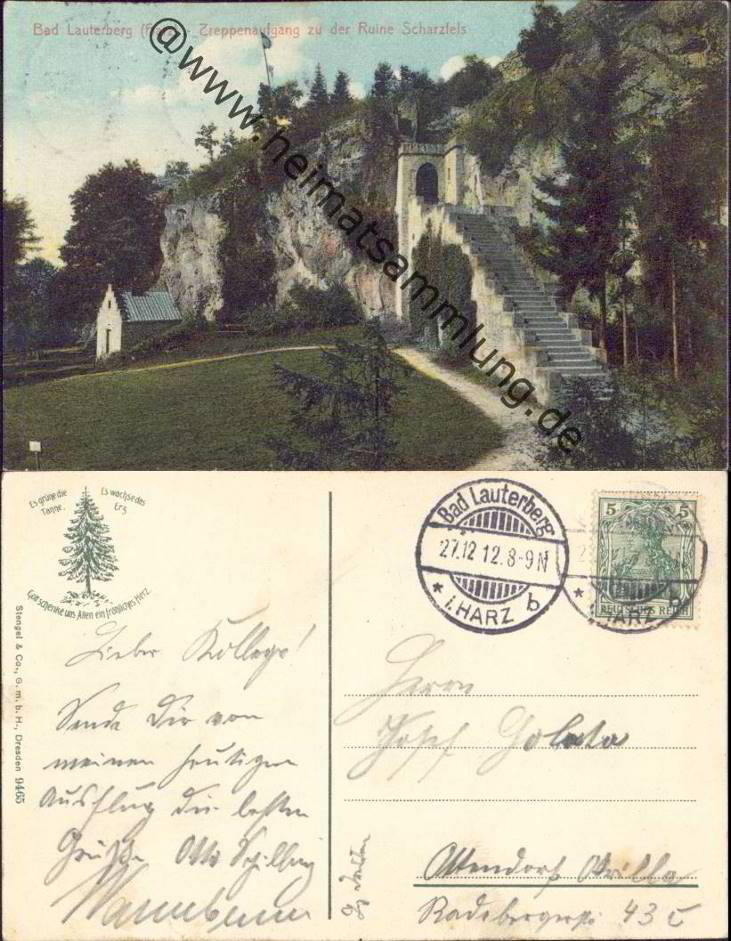 Bad Lauterberg (Harz) - Treppenaufgang zu der Ruine Scharzfels
@www.heimatsammlung.de
Es grüne die Tanne.
Es wachse das Erz
Gott schenke uns Allen ein fröhliches Herz.
Stengel & Co., G. m. b. H., Dresden 9465
Bad Lauterberg
27.12 12. 8-9 N
* i. HARZ b
5 5
DEUTSCHES REICH
Lieber Kollege!
Sende Dir von
meinem heutigen
Ausflug die besten
Grüße Otto Schilling
Herrn
Josef
Ottendorf Okrilla
Radebergerstr. 43 c